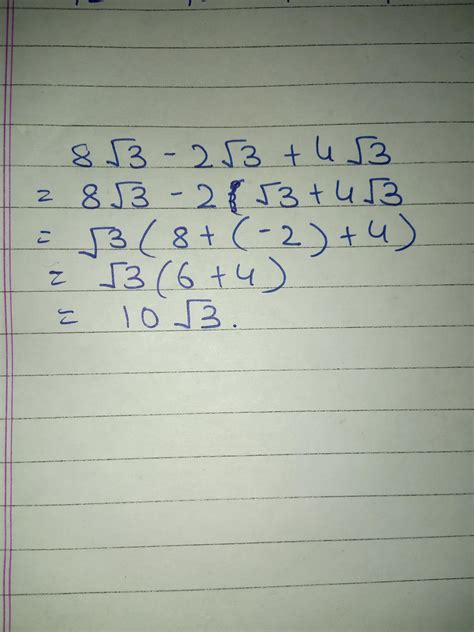 8√3 - 2√3 + 4√3
= 8√3 - 2 √3 + 4√3
= √3 ( 8 + ( -2 ) + 4 )
= √3 ( 6 + 4 )
= 10 √3.